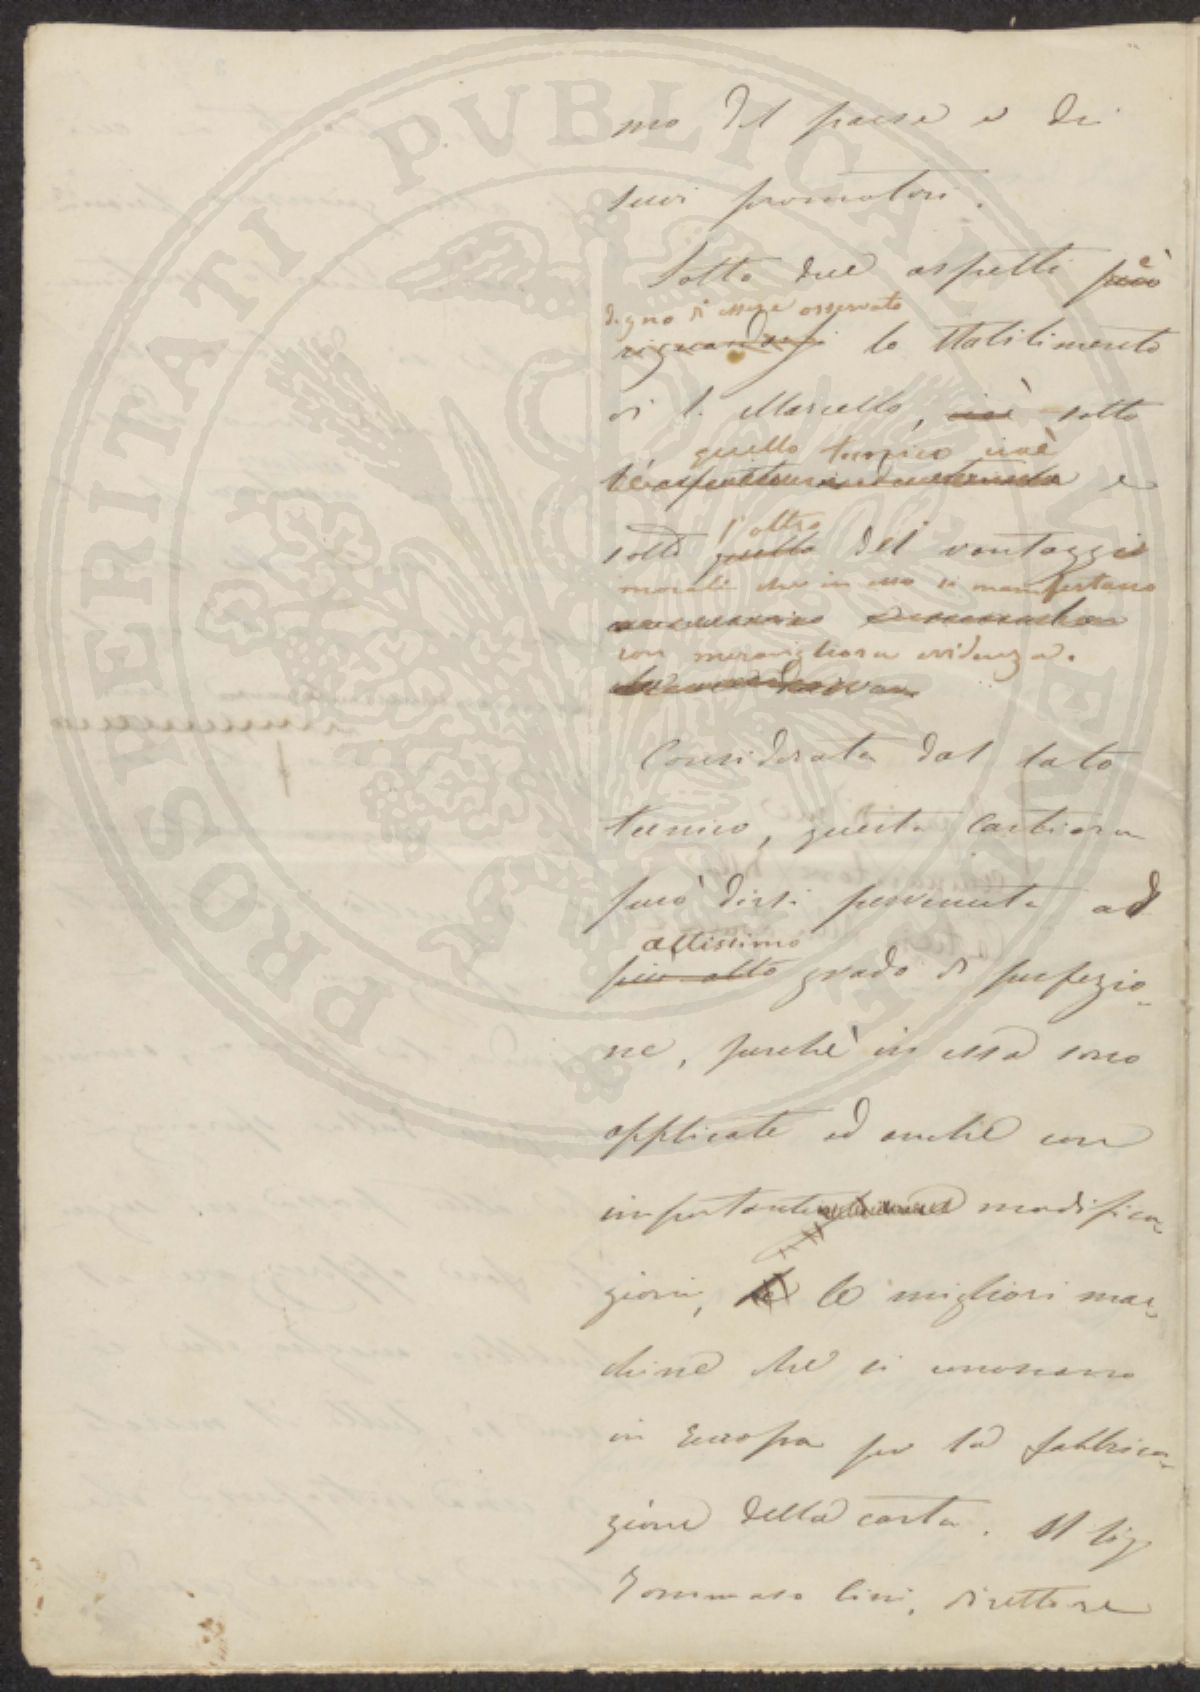 mo del paese e di
suoi promotori.
Sotto due aspetti può è
degno di essere osservato
riguardarsi lo Stabilimento
di S. Marcello, cioè sotto
quello tecnico cioè
e
l'altro
sotto quello dei vantaggi
morali che in esso si manifestano
con meravigliosa evidenza.
Considerata dal lato
tecnico, questa Cartiera
può dirsi pervenuta ad
altissimo
più alto grado di perfezio-
ne, perchè in essa sono
applicate ed anche con
importanti modifica-
zioni, le le migliori mac-
chine che si conoscano
in Europa per la fabbrica-
zione della carta. Il Sig
Tommaso Cini, direttore
PROSPERITATI PUBLICAE